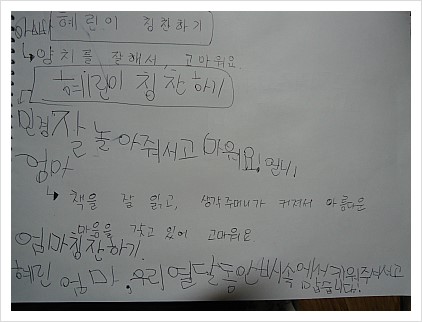 아빠 혜린이 칭찬하기
↳ 양치를 잘해서, 고마워요.
혜린이 칭찬하기
민경 잘 놀아줘서고마워요! 언니!
엄마
↳ 책을 잘 읽고, 생각주머니가 커져서 아름다운
마음을 갖고 있어 고마워요.
엄마칭찬하기.
혜린 엄마, 우리 열달동안 배속에서 키워주셔서고
맙습니다!